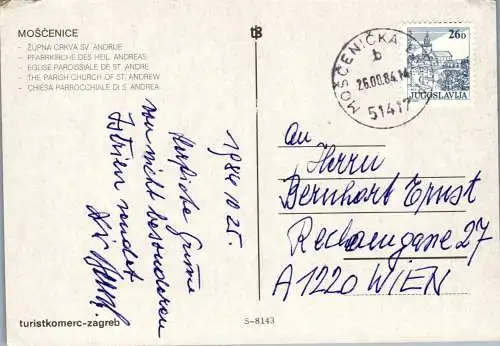 MOŠĆENICE
- ŽUPNA CRKVA SV. ANDRIJE
- PFARRKIRCHE DES HEIL. ANDREAS
- EGLISE PAROISSIALE DE ST. ANDRE
- THE PARISH CHURCH OF ST. ANDREW
- CHIESA PARROCCHIALE DI S. ANDREA
MOŠĆENIČKA
b
26.00.84.14
51417
26D
JUGOSLAVIJA
1984 10 25.
Herzliche Grüsse
aus nicht besonderen
Istrien sendet
An
Herrn
Bernhart Ernst
27
A1220 WIEN
turistkomerc-zagreb
S-8143